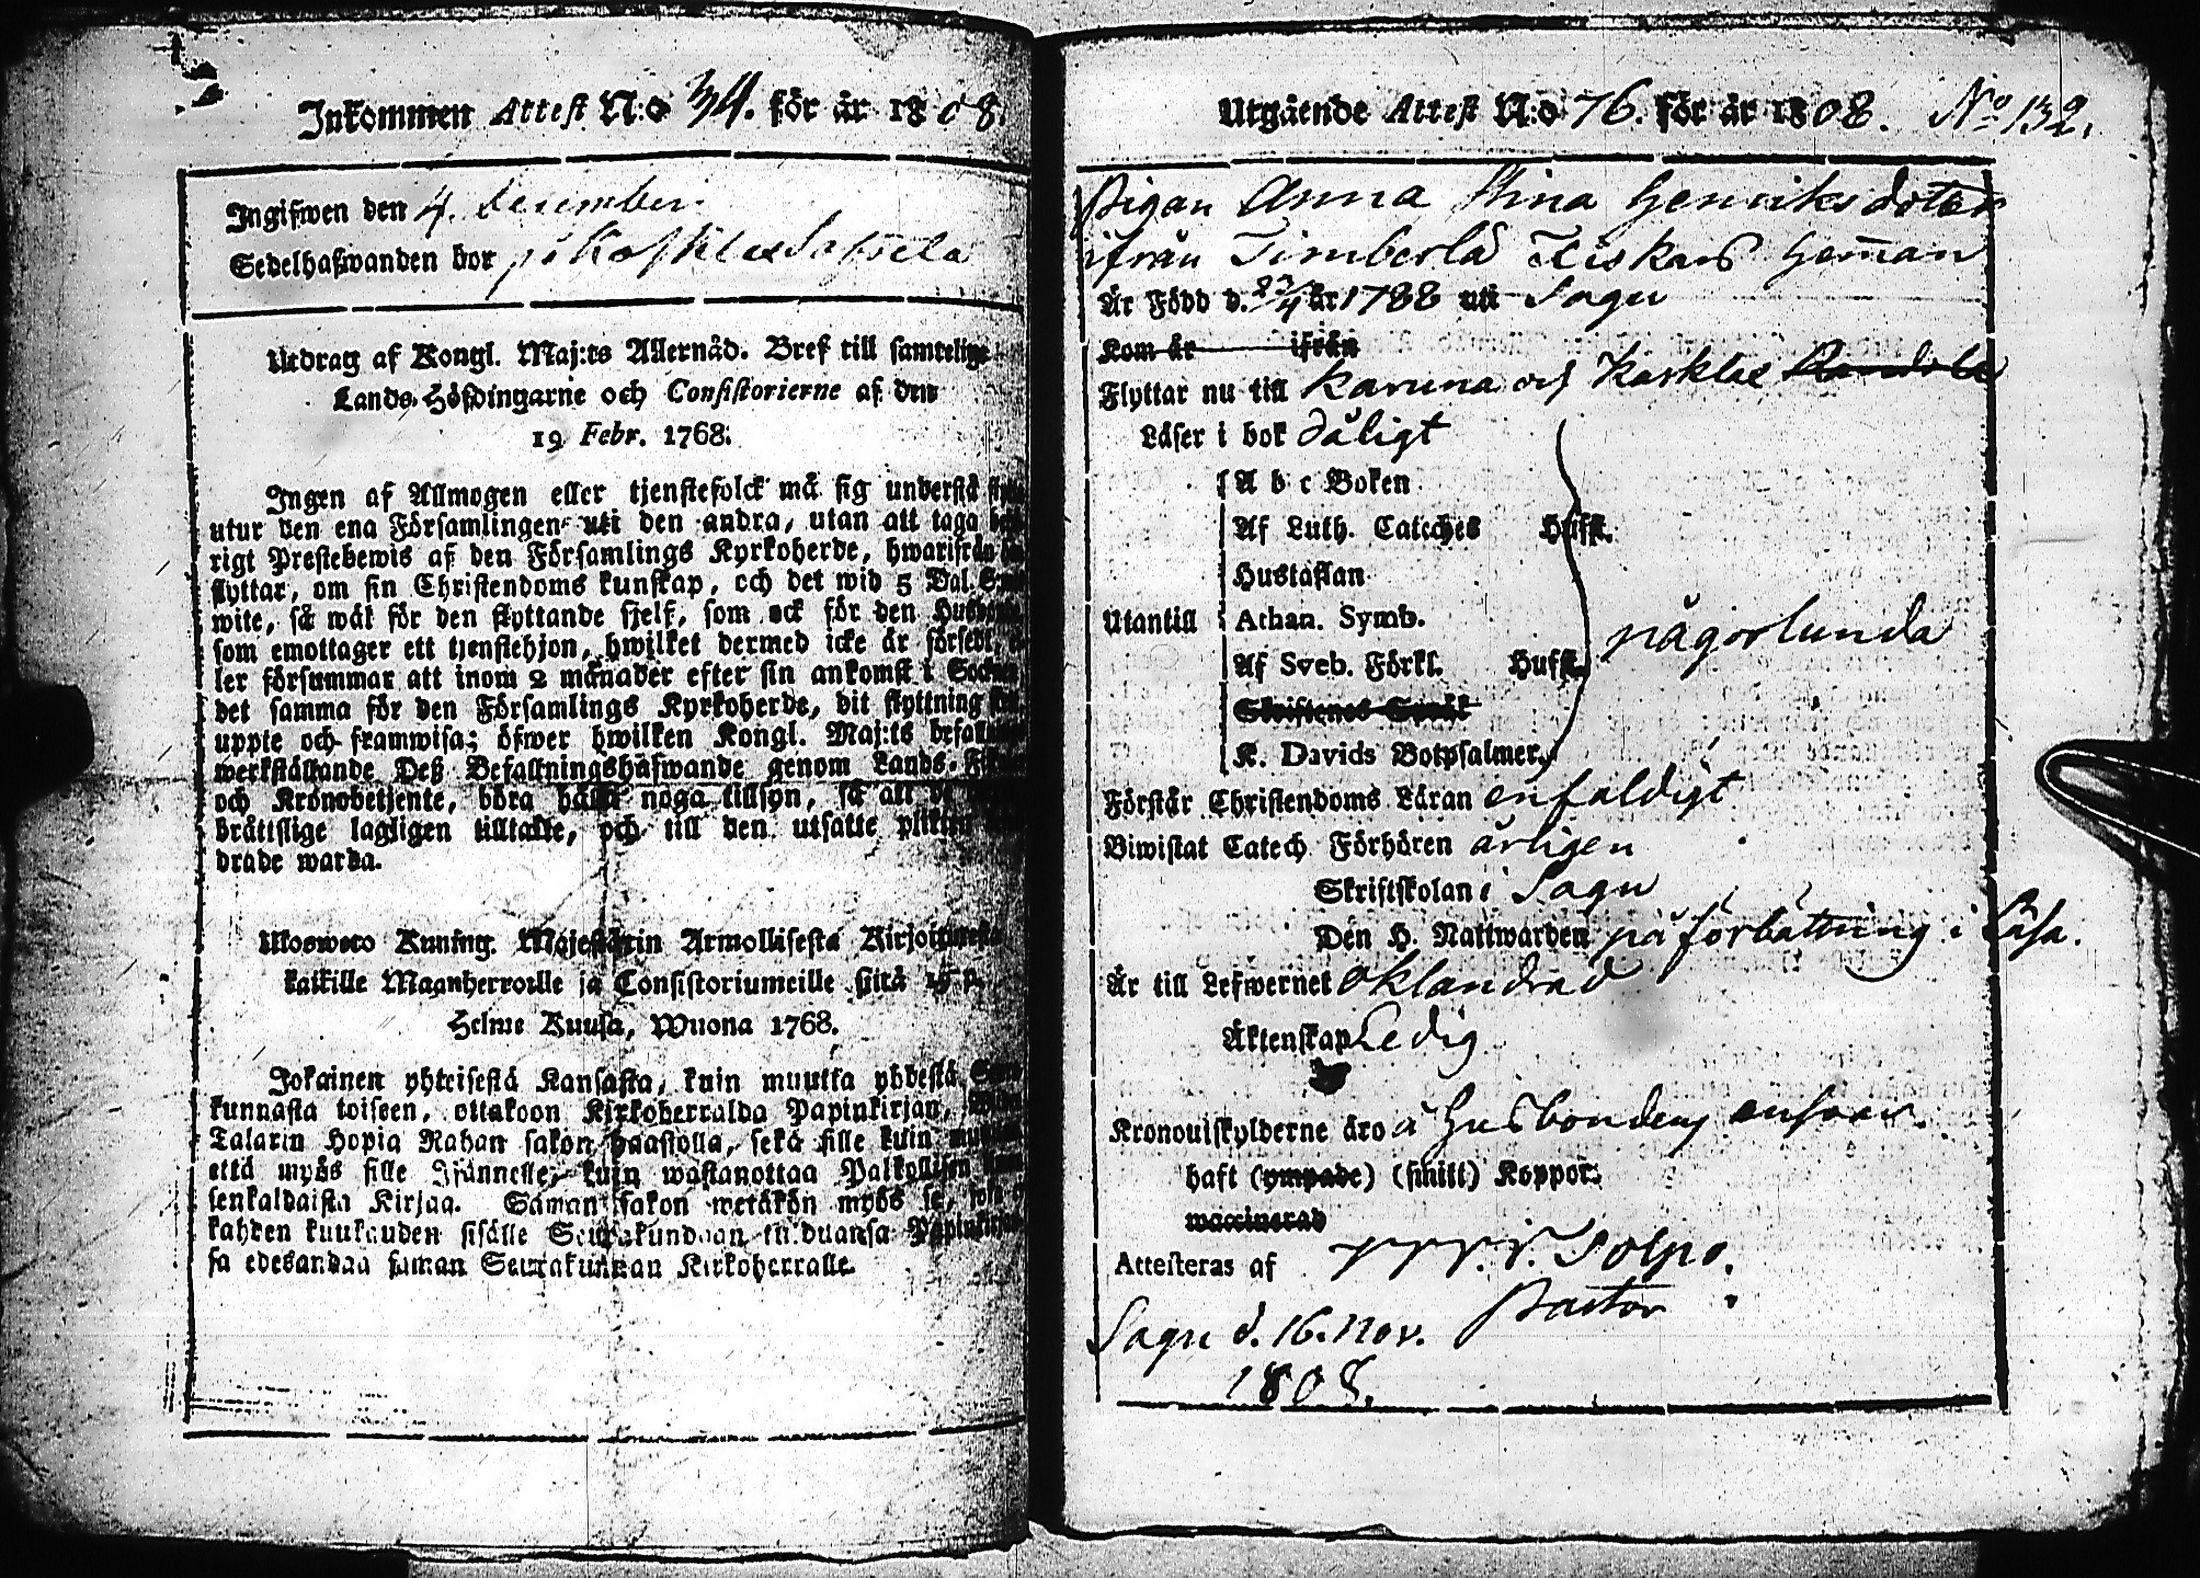 Inkommen Attest N:o 34. för år 1808.
Ingifwen den 4. December.
Sedelhafwanden bor på Kasklax
Utdrag af Kongl. Maj:ts Allernåd. Bref till samtelige
Lands-Höfdingarne och Consistorierne af den
19 Febr. 1768.
Ingen af Allmogen eller tjenstefolck må sig understå
utur den ena Församlingen uti den andra, utan att taga
rigt Prestebewis af den Församlings Kyrkoherde, hwarifrån
flyttar, om sin Christendoms kunskap, och det wid 5 Dal. S:mt
wite, så wäl för den flyttande sjelf, som ock för den
som emottager ett tjenstehjon, hwilket dermed icke är försedt,
ler försummar att inom 2 månader efter sin ankomst i Socknen
det samma för den Församlings Kyrkoherde, dit flyttning
uppte och framwisa; öfwer hwilken Kongl. Maj:ts befallning
werkställande Deß Befallningshafwande genom Lands-
och Kronobetjente, böra hålla noga tillsyn, så att
bråttslige lagligen tilltalte, och till den utsatte plikten
drade warda.
Uloswero Kuning. Majestätin Armollisesta Kirjoituxesta
kaikille Maanherroille ja Consistoriumeille siitä 19 p.
Helme Kuusa, Wuona 1768.
Jokainen yhteisestä Kansasta, kuin muutta yhdestä
kunnasta toiseen, ottakoon Kirkoherralda Papinkirjan,
Talarin Hopia Rahan sakon haastolla, sekä sille kuin
että myös sille Isännelle, kuin wastanottaa Palkollisen
senkaldaista Kirjaa. Saman sakon wetäkön myös se,
kahden kuukauden sisälle Seurakundaan tulduansa Papinkirjan
sa edesandaa saman Seurakunnan Kirkoherralle.
Utgående Attest N:o 76. för år 1808. No 132.
Pigan Anna Stina Henriksdoter
ifrån Timberla Heman
Är Född d. 23/4 år 1788 uti Sagu
Kom år ifrån
Flyttar nu till Karuna och Kasklax
Läser i bok dåligt
A b c Boken
Af Luth. Cateches Hufst.
Hustaflan
Utantill Athan. Symb.
Af Sveb. Förkl. Hufst. någorlunda
Skriftenes Språk
K. Davids Botpsalmer
Förstår Christendoms Läran enfaldigt
Biwistat Catech. Förhören årligen
Skriftskolan i Sagu
Den H. Nattwarden på förbättring i läsa.
Är till Lefwernet oklandrad
Äktenskap Ledig
Kronoutskylderne äro å Husbondens ansvar.
haft (ympade) (smitt) Koppor.
waccinerad
Attesteras af Solpo.
Pastor
Sagu d. 16. Nov.
1808.